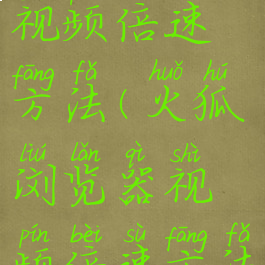 视频倍速
fāng fǎ huǒ hú
方法(火狐
liú lǎn qì shì
浏览器视
pín bèi sù fāng fǎ
频倍速方法